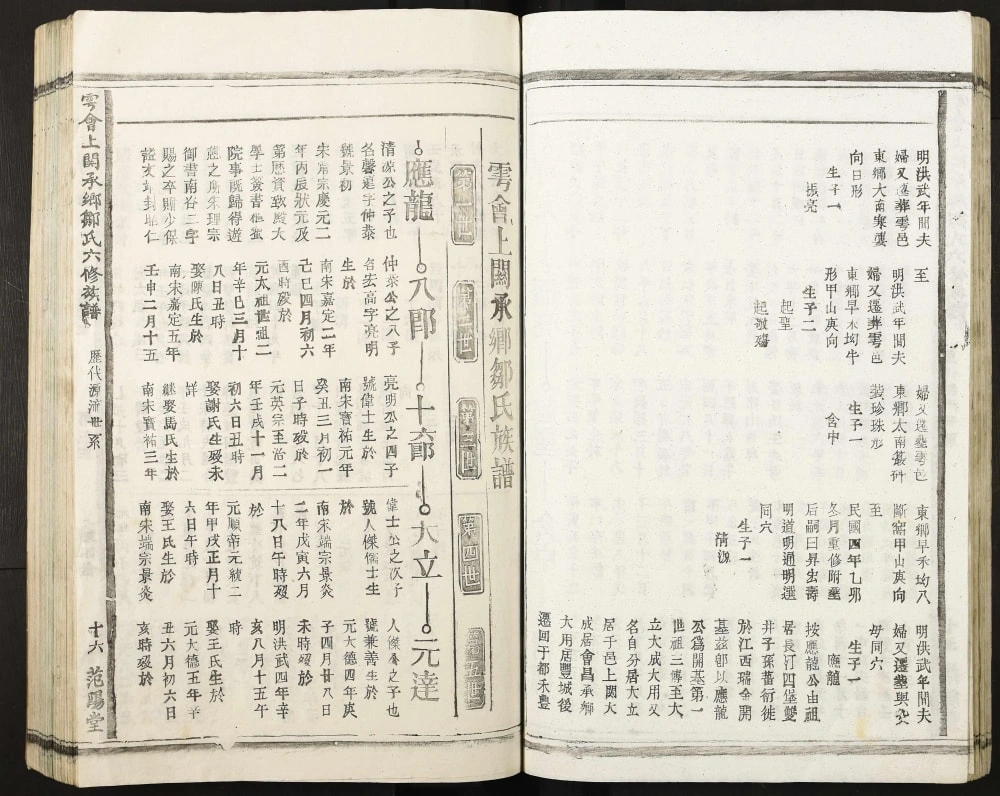 明洪武年間夫
婦又遷葬雩邑
東鄉大南寒婆
向日形
生子一
振亮
至
明洪武年間夫
婦又遷葬雩邑
東鄉早禾坳牛
形甲山寅向
生子二
起聖
起敬殤
婦又遷葬雩邑
東鄉太南
裝珍珠形
生子一
含中
東鄉早禾坳八
斷窰甲山寅向
至
民國四年乙邪
冬月重修附塟
后嗣曰昇生壽
明道明通明選
同穴
生子一
清源
明洪武年間夫
婦又遷塟與父
母同穴
生子一
應龍
按應龍公由祖
居長汀四堡雙
井子孫蕃衍徙
於江西瑞金開
基茲郃以應龍
公為開基第一
世祖三傳至大
立大成大用又
名自分居大立
居于邑上闗大
成居會昌承鄉
大用居豐城後
遷回于都禾豊
雩會上闗承鄉鄒氏族譜
第一世
第二世
第三世
第四世
第五世
應龍
八郎
十六郎
大立
元達
清源公之子也
名馨遠字仲恭
號景初
宋甯宗慶元二
年丙辰狀元及
第歷資政殿大
學士簽書樞蜜
院事既歸得遊
應之所宋理宗
御書南谷二字
賜之卒贈少保
諡文靖封昭仁
仲恭公之八子
名宏高字亮明
生於
南宋嘉定二年
己巳四月初六
酉時殁於
元太祖世祖二
年辛巳三月十
八日丑時
娶陳氏生於
南宋嘉定五年
壬申二月十五
亮明公之四子
號偉士生於
南宋寶祐元年
癸丑三月初一
日子時殁於
元英宗至治二
年壬戌十一月
初六日丑時
娶謝氏生殁未
詳
継娶馬氏生於
南宋寶祐三年
偉士公之次子
號人傑儒士生
於
南宋端宗景炎
二年戊寅六月
十八日午時殁
於
元順帝元統二
年甲戌正月十
六日午時
娶王氏生於
南宋端宗景炎
人傑公之子也
號兼善生於
元大德四年庚
子四月廿八日
未時殁於
明洪武四年辛
亥八月十五午
時
娶王氏生於
元大德五年辛
丑六月初六日
亥時殁於
雩會上闗承鄉鄒氏六修族譜
歷代源流世系
十六
范陽堂